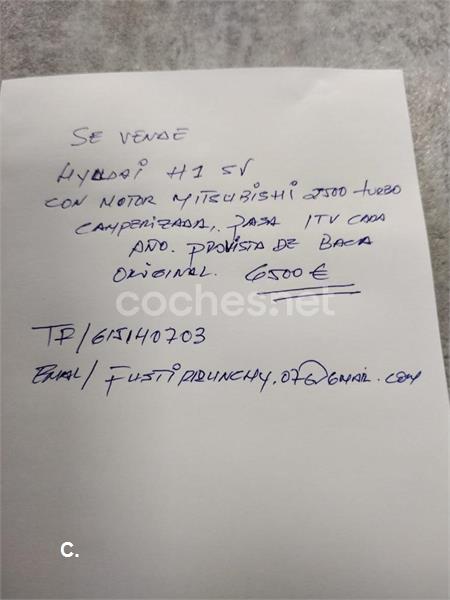 SE VENDE
HYUDAI H1 SV
CON MOTOR MITSUBISHI 2500 TURBO
CAMPERIZADA, PASA ITV CADA
AÑO. PROVISTA DE BACA
ORIGINAL. 6500 €
coches.net
TF/615140703
EMAIL/ @GMAIL.COM
C.